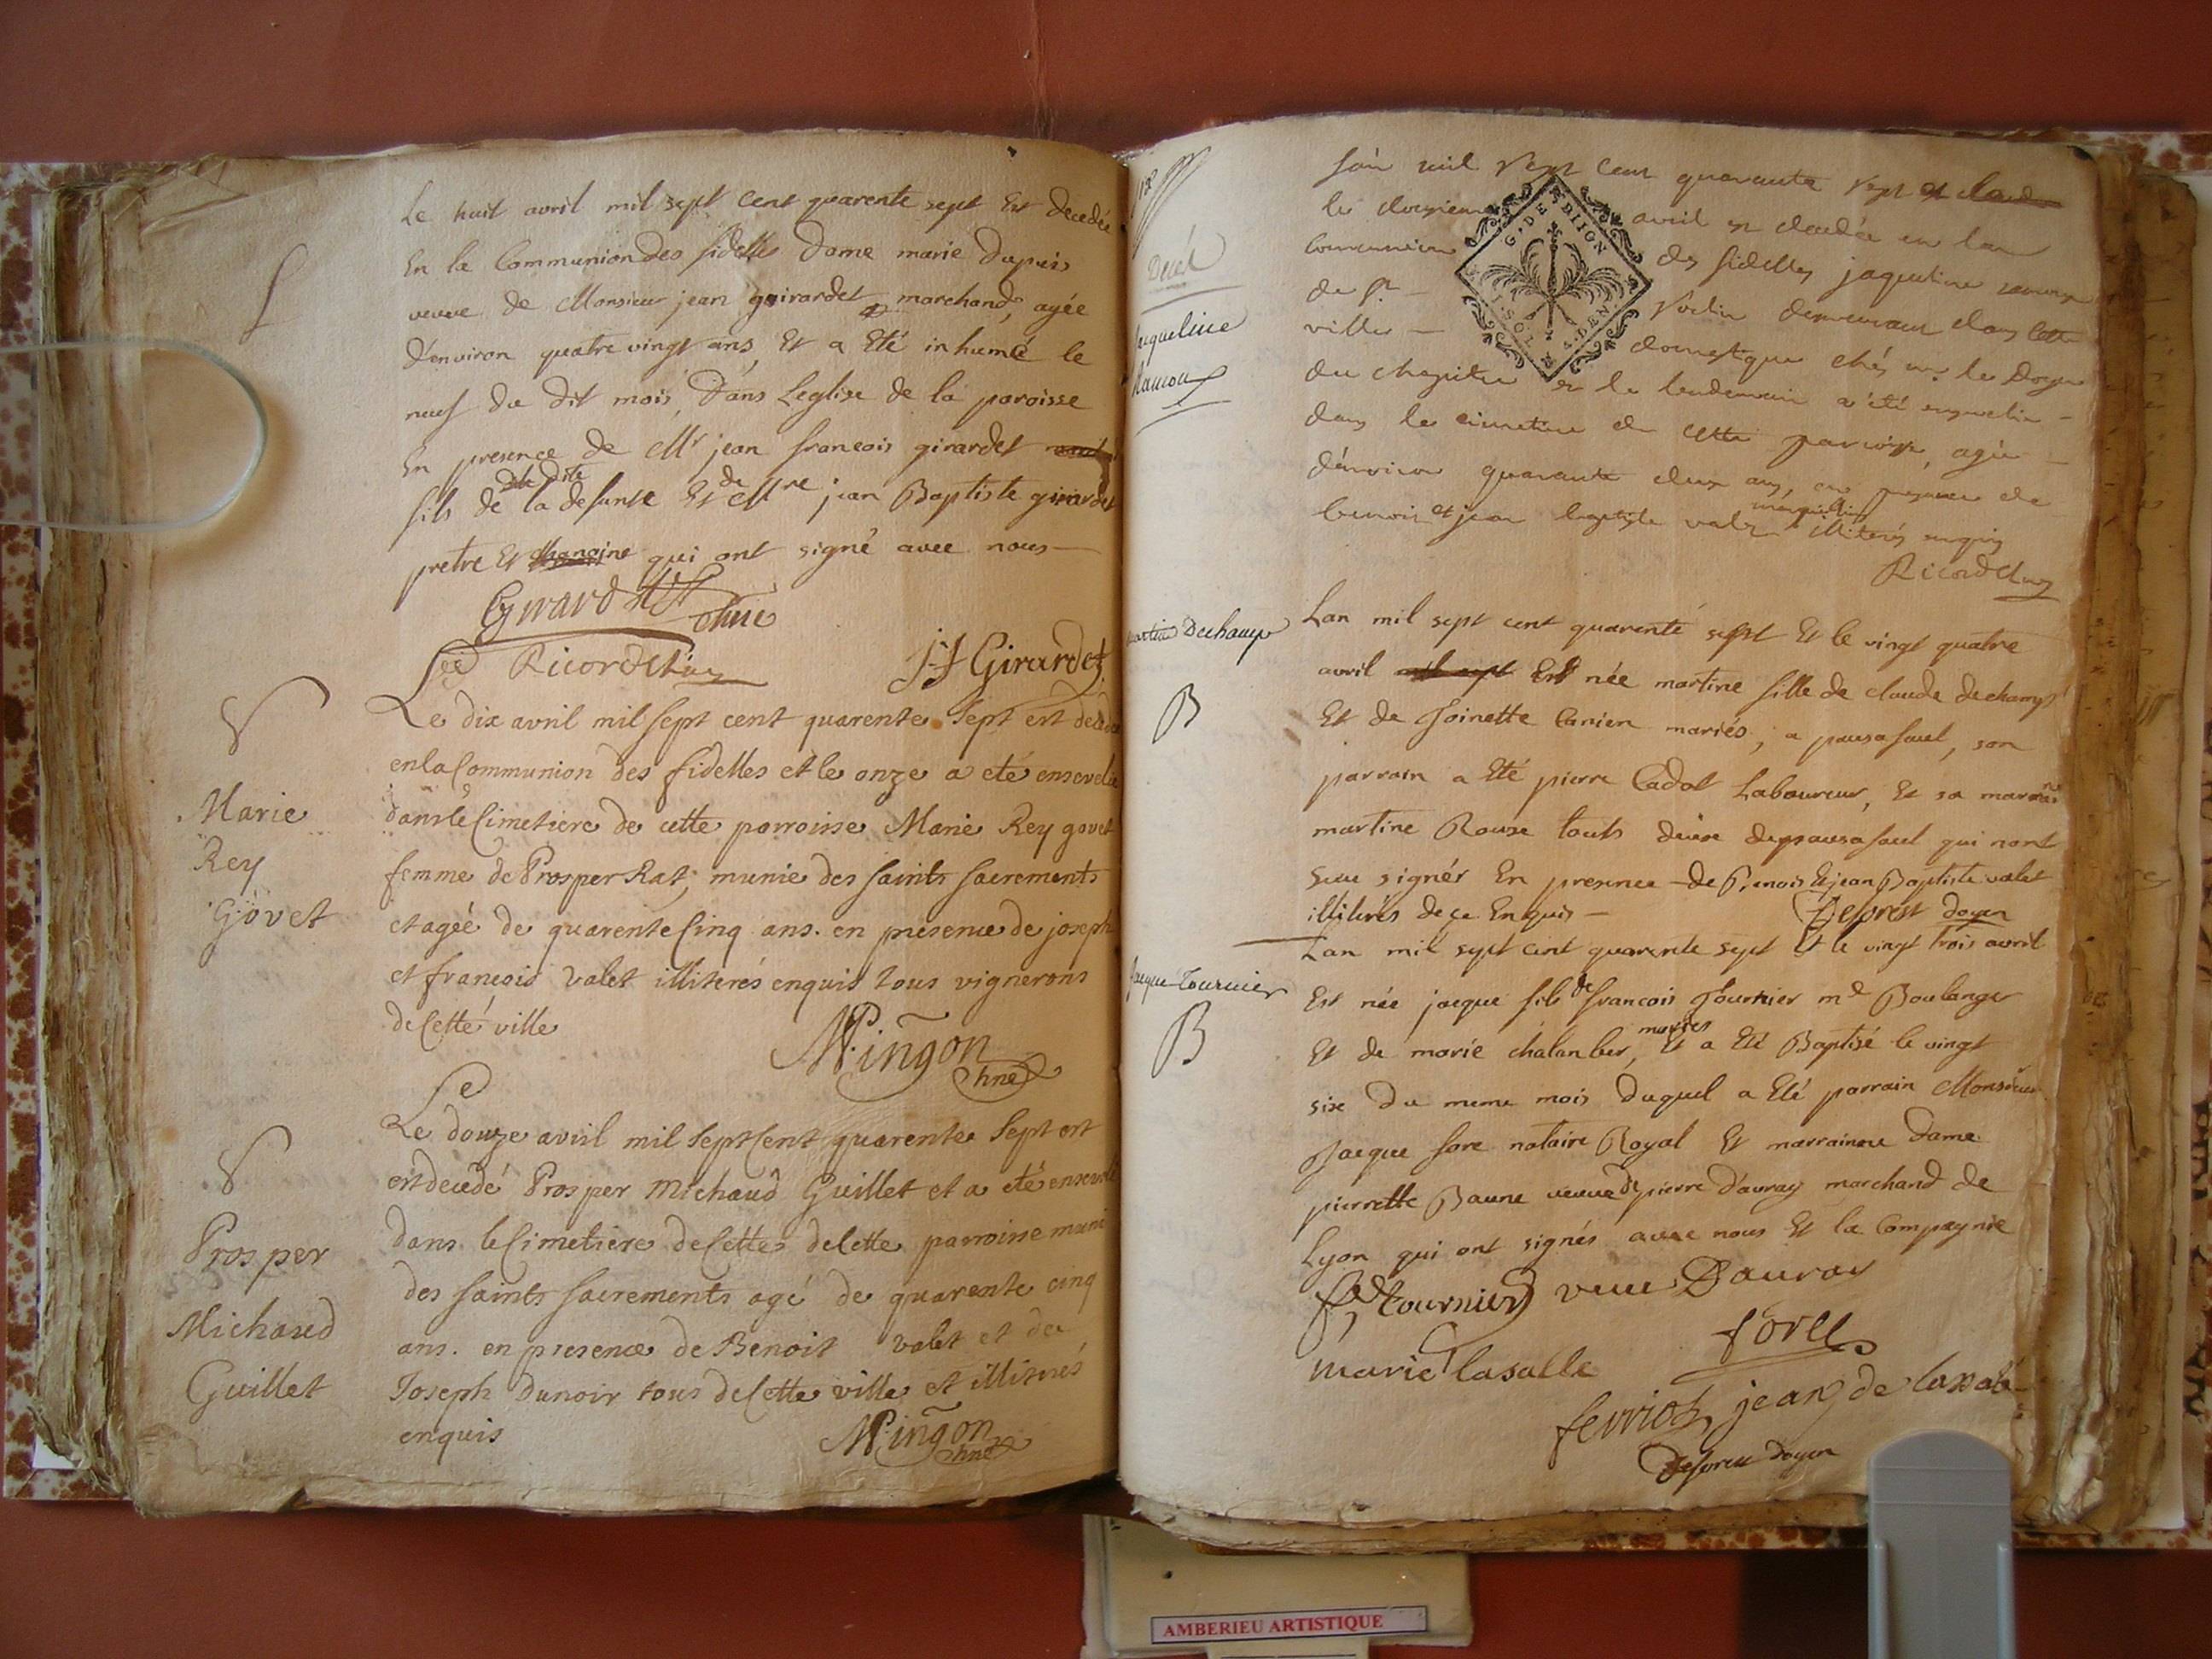 Le huit avril mil sept cent quarente sept Est decedée
En la Communion des fidelles Dame marie Dupuis
veuve de Monsieur jean girardet marchand, agée
d'environ quatre vingt ans Et a Eté inhumée le
neuf du dit mois, Dans Leglise de la paroisse
En presence de Mr jean francois girardet
fils de la defunte Et de Mre jean Baptiste girardet
pretre Et chanoine qui ont signé avec nous
Girardet chne
Ricordet JF Girardet
Marie
Rey
Govet
Le dix avril mil sept cent quarente sept est decedée
en la Communion des fidelles et le onze a eté ensevelie
dans le Cimetiere de cette parroisse Marie Rey govet
femme de Prosper Rat, munie des saints sacrements
et agée de quarente Cinq ans. en presence de joseph
et francois valet illiterés enquis tous vignerons
de Cette ville
Mingon
chne
Prosper
Michaud
Guillet
Le
Le douze avril mil sept Cent quarente sept est
est decedé Prosper Michaud Guillet et a eté enseveli
dans le Cimetiere de Cette de Cette parroisse muni
des saints sacrements agé de quarente cinq
ans. en presence de Benoit valet et de
Joseph Dunoir tous de Cette ville et illiterés
enquis
Mingon
chne
Decés
Jaqueline
mil sept cent quarante sept
le avril est decedée en la
Communion des fidelles jaqueline
de demeurant dans Cette
ville domestique chés mr le Doyen
du chapitre et le lendemain a été ensevelie
dans le cimetiere de cette parroisse, agée
d'environ quarante deux ans, en presence de
benoit et jean baptiste valet illiterés enquis
Ricordet
G. DE DIJON
Martine Dechamp
B
Lan mil sept cent quarente sept Et le vingt quatre
avril Est née martine fille de claude dechamp
Et de Toinette Canier mariés, a pausafoul, son
parrain a Eté pierre Cadot Laboureur, Et sa marraine
martine Rouse touts deux de pausafoul qui nont
sceu signér En presence de Benois Et jean Baptiste valet
illiterés de ce Enquis
Deforest doyen
Jacque Tournier
B
Lan mil sept cent quarente sept Et le vingt trois avril
Est née jacque fils de francois Tournier me Boulanger
Et de marie chalanber, mariés Et a Eté Baptisé le vingt
six Du meme mois Duquel a Eté parrain Monsieur
Jacque fore notaire Royal Et marrainne Dame
pierrette Baune veuve de pierre d'auray marchand de
Lyon qui ont signés avec nous Et la Compagnie
f Tournier veuve Dauray
forel
marie lasalle
ferrioz jean de lasale
Deforest doyen
AMBERIEU ARTISTIQUE